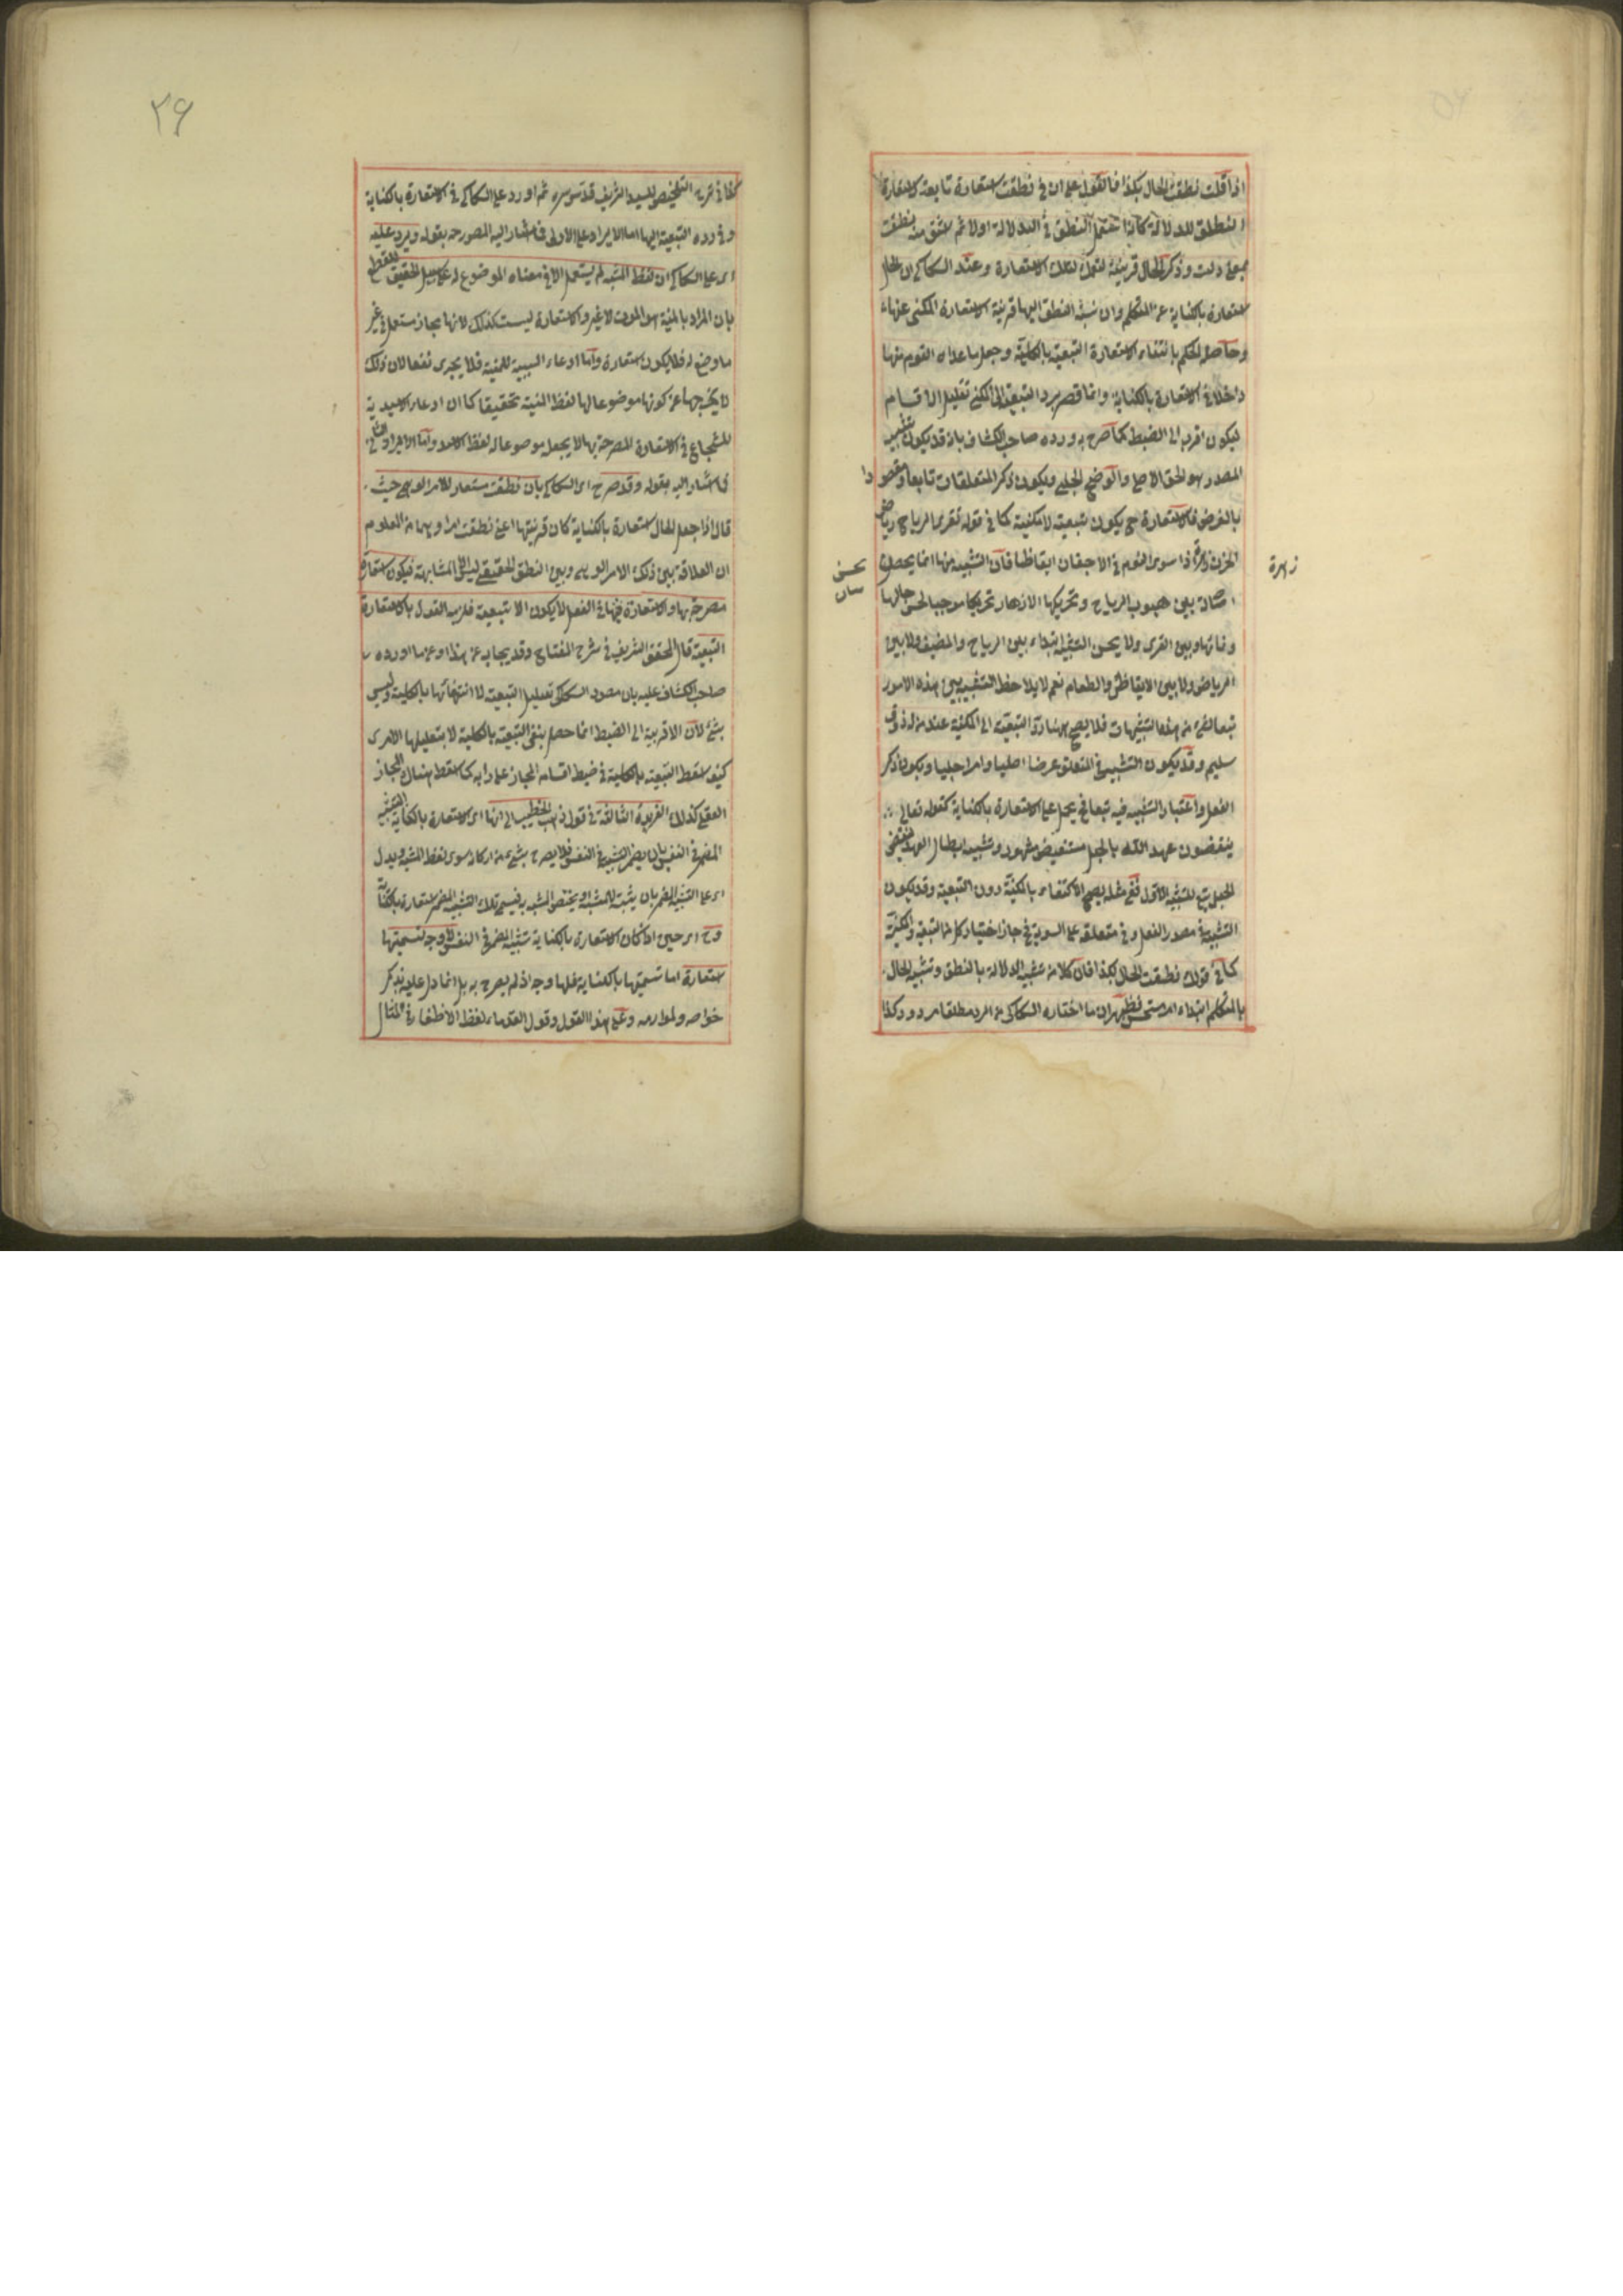 اذا قلت نطقت الحال بكذا فالقول على ان في نطقت استعارة تابعة لاستعارة
النطق للدلالة كانا نستعمل النطق في الدلالة اولا ثم نشتق منه نطقت
بمعنى دلت وذكر الحال قرينة لتلك الاستعارة وعند السكاكي ان الحال
استعارة بالكناية عن المتكلم وان نسبة النطق اليها قرينة الاستعارة المكنى عنها
وحاصله الحكم بانتفاء الاستعارة التبعية بالكلية وجعل ما عداه القوم منها
داخلا في الاستعارة بالكناية وانما قصر برد التبعية الى المكني تقليل الاقسام
ليكون اقرب الى الضبط كما صرح به ورده صاحب الكشاف بانه قد يكون تشبيه
المصدر هو الحق الاصلي والواضح الجلي ويكون ذكر المتعلقات تابعا ومقصودا
بالغرض فالاستعارة ح يكون تبعية لا مكنية كما في قوله تقري الرياح رياض
الحزن مزهرة اذا سرى النوم في الاجفان ايقاظا فان التشبيه منها انما يحصل
اصالة بين هبوب الرياح وتحريكها الازهار تحريكا موجبا لحسن حالها
زهرة
وضاتها وبين القرى ولا يحسن التشبيه ابتداء بين الرياح والمضيف ولا بين
الرياض ولا بين الايقاظ والطعام نعم لا يلاحظ التشبيه بين هذه الامور
تبعا لشيء من هذه التشبيهات فلا يصح هنا رد التبعية الى المكنية عند من له ذوق
سليم وقد يكون التشبيه في المتعلق غرضا اصليا وامرا جليا ويكون ذكر
الفعل واعتبار التشبيه فيه تبعا فح يحمل على الاستعارة بالكناية كقوله تعالى
ينقضون عهد الله بالحبل مستفيض مشهور وتشبيه ابطال العهد بنقض
الحبل تبع للتشبيه الاول ففي مثله يصح الاكتفاء بالمكنية دون التبعية وقد يكون
التشبيه في مصدر الفعل وفي متعلقه على السوية فح جاز اختيار كل من التبعية والمكنية
كما في قولك نطقت الحال بكذا فان كلا من تشبيه الدلالة بالنطق وتشبيه الحال
بالمتكلم ابتداء امر مستحسن فظهر ان ما اختاره السكاكي من الرد مطلقا مردود كذا
٢٦
التلخيص للسيد الشريف قدس سره ثم اورد على السكاكي في الاستعارة بالكناية
وفي رده التبعية اليها اما الايراد على الاولى فما اشار اليه المص رحه بقوله ويرد عليه
اي على السكاكي ان لفظ المشبه لم يستعمل الا في معناه الموضوع له على سبيل التحقيق للقطع
بان المراد بالمنية هو الموت لا غير والاستعارة ليست كذلك لانها مجاز مستعمل في غير
ما وضع له فلا يكون استعارة واما ادعاء السبعية للمنية فلا يجدي نفعا لان ذلك
لا يخرجها عن كونها موضوعا لها لفظ المنية تحقيقا كما ان ادعاء الاسدية
للشجاع في الاستعارة المصرحة بها لا يجعل موضوعا له لفظ الاسد واما الايراد الثاني
فما اشار اليه بقوله وقد صرح اي السكاكي بان نطقت مستعار للامر الوهمي حيث
قال اذا جعل الحال استعارة بالكناية كان قرينتها اعني نطقت امرا وهميا من المعلوم
ان العلاقة بين ذلك الامر الوهمي وبين النطق الحقيقي ليس الا المشابهة فيكون استعارة
مصرحة بها والاستعارة فيها في الفعل لا يكون الا تبعية فلزمه القول بالاستعارة
التبعية قال المحقق الشريف في شرح المفتاح وقد يجاب عن هذا وعما اورده
صاحب الكشاف عليه بان مقصود السكاكي تقليل التبعية لا انتفائها بالكلية وليس
بشئ لان الاقربية الى الضبط انما حصل بنفي التبعية بالكلية لا بتقليلها الا ترى
كيف اسقط التبعية بالكلية في ضبط اقسام المجاز على رايه كما اسقط هناك المجاز
العقلي كذلك الفريدة الثالثة في قول ذهب الخطيب الى انها اي الاستعارة بالكناية التشبيه
المضمر في النفس بان يضمر التشبيه في النفس فلا يصرح بشئ من اركانه سوى لفظ المشبه ويدل
اي على التشبيه المضمر بان يثبت للمشبه امر يختص بالمشبه به فيسمى ذلك التشبيه المضمر استعارة بالكناية
وح اي حين اذ كان الاستعارة بالكناية تشبيه المضمر في النفس لا وجه لتسميتها
استعارة اما تسميتها بالكناية فلها وجه اذ لم يصرح به بل انما دل عليه بذكر
خواصه ولوازمه وعلى هذا القول وقول القدماء لفظ الاظفار في المثال